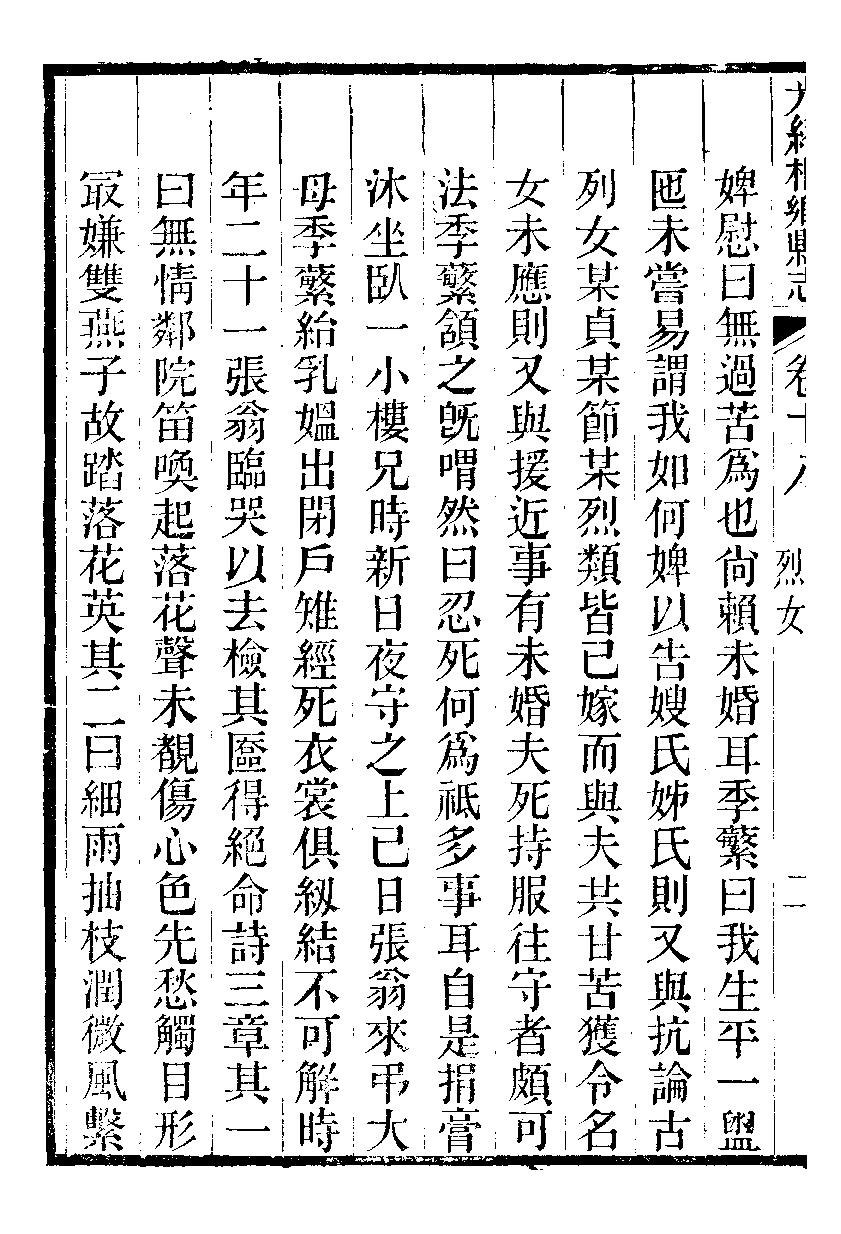 光緒桐鄉縣志 卷十八 烈女 二
婢慰曰無過苦為也尙賴未婚耳季蘩曰我生平一盥
匜未嘗易謂我如何婢以吿嫂氏姊氏則又與抗論古
列女某貞某節某烈類皆已嫁而與夫共甘苦獲令名
女未應則又與援近事有未婚夫死持服往守者頗可
法季蘩頷之旣喟然曰忍死何爲祗多事耳自是捐膏
沐坐臥一小樓兄時新日夜守之上巳日張翁來弔大
母季蘩紿乳媼出閉戶雉經死衣裳俱紉結不可解時
年二十一張翁臨哭以去檢其匳得絕命詩三章其一
曰無情鄰院笛喚起落花聲未覩傷心色先愁觸目形
㝡嫌雙燕子故踏落花英其二曰細雨抽枝潤微風繫